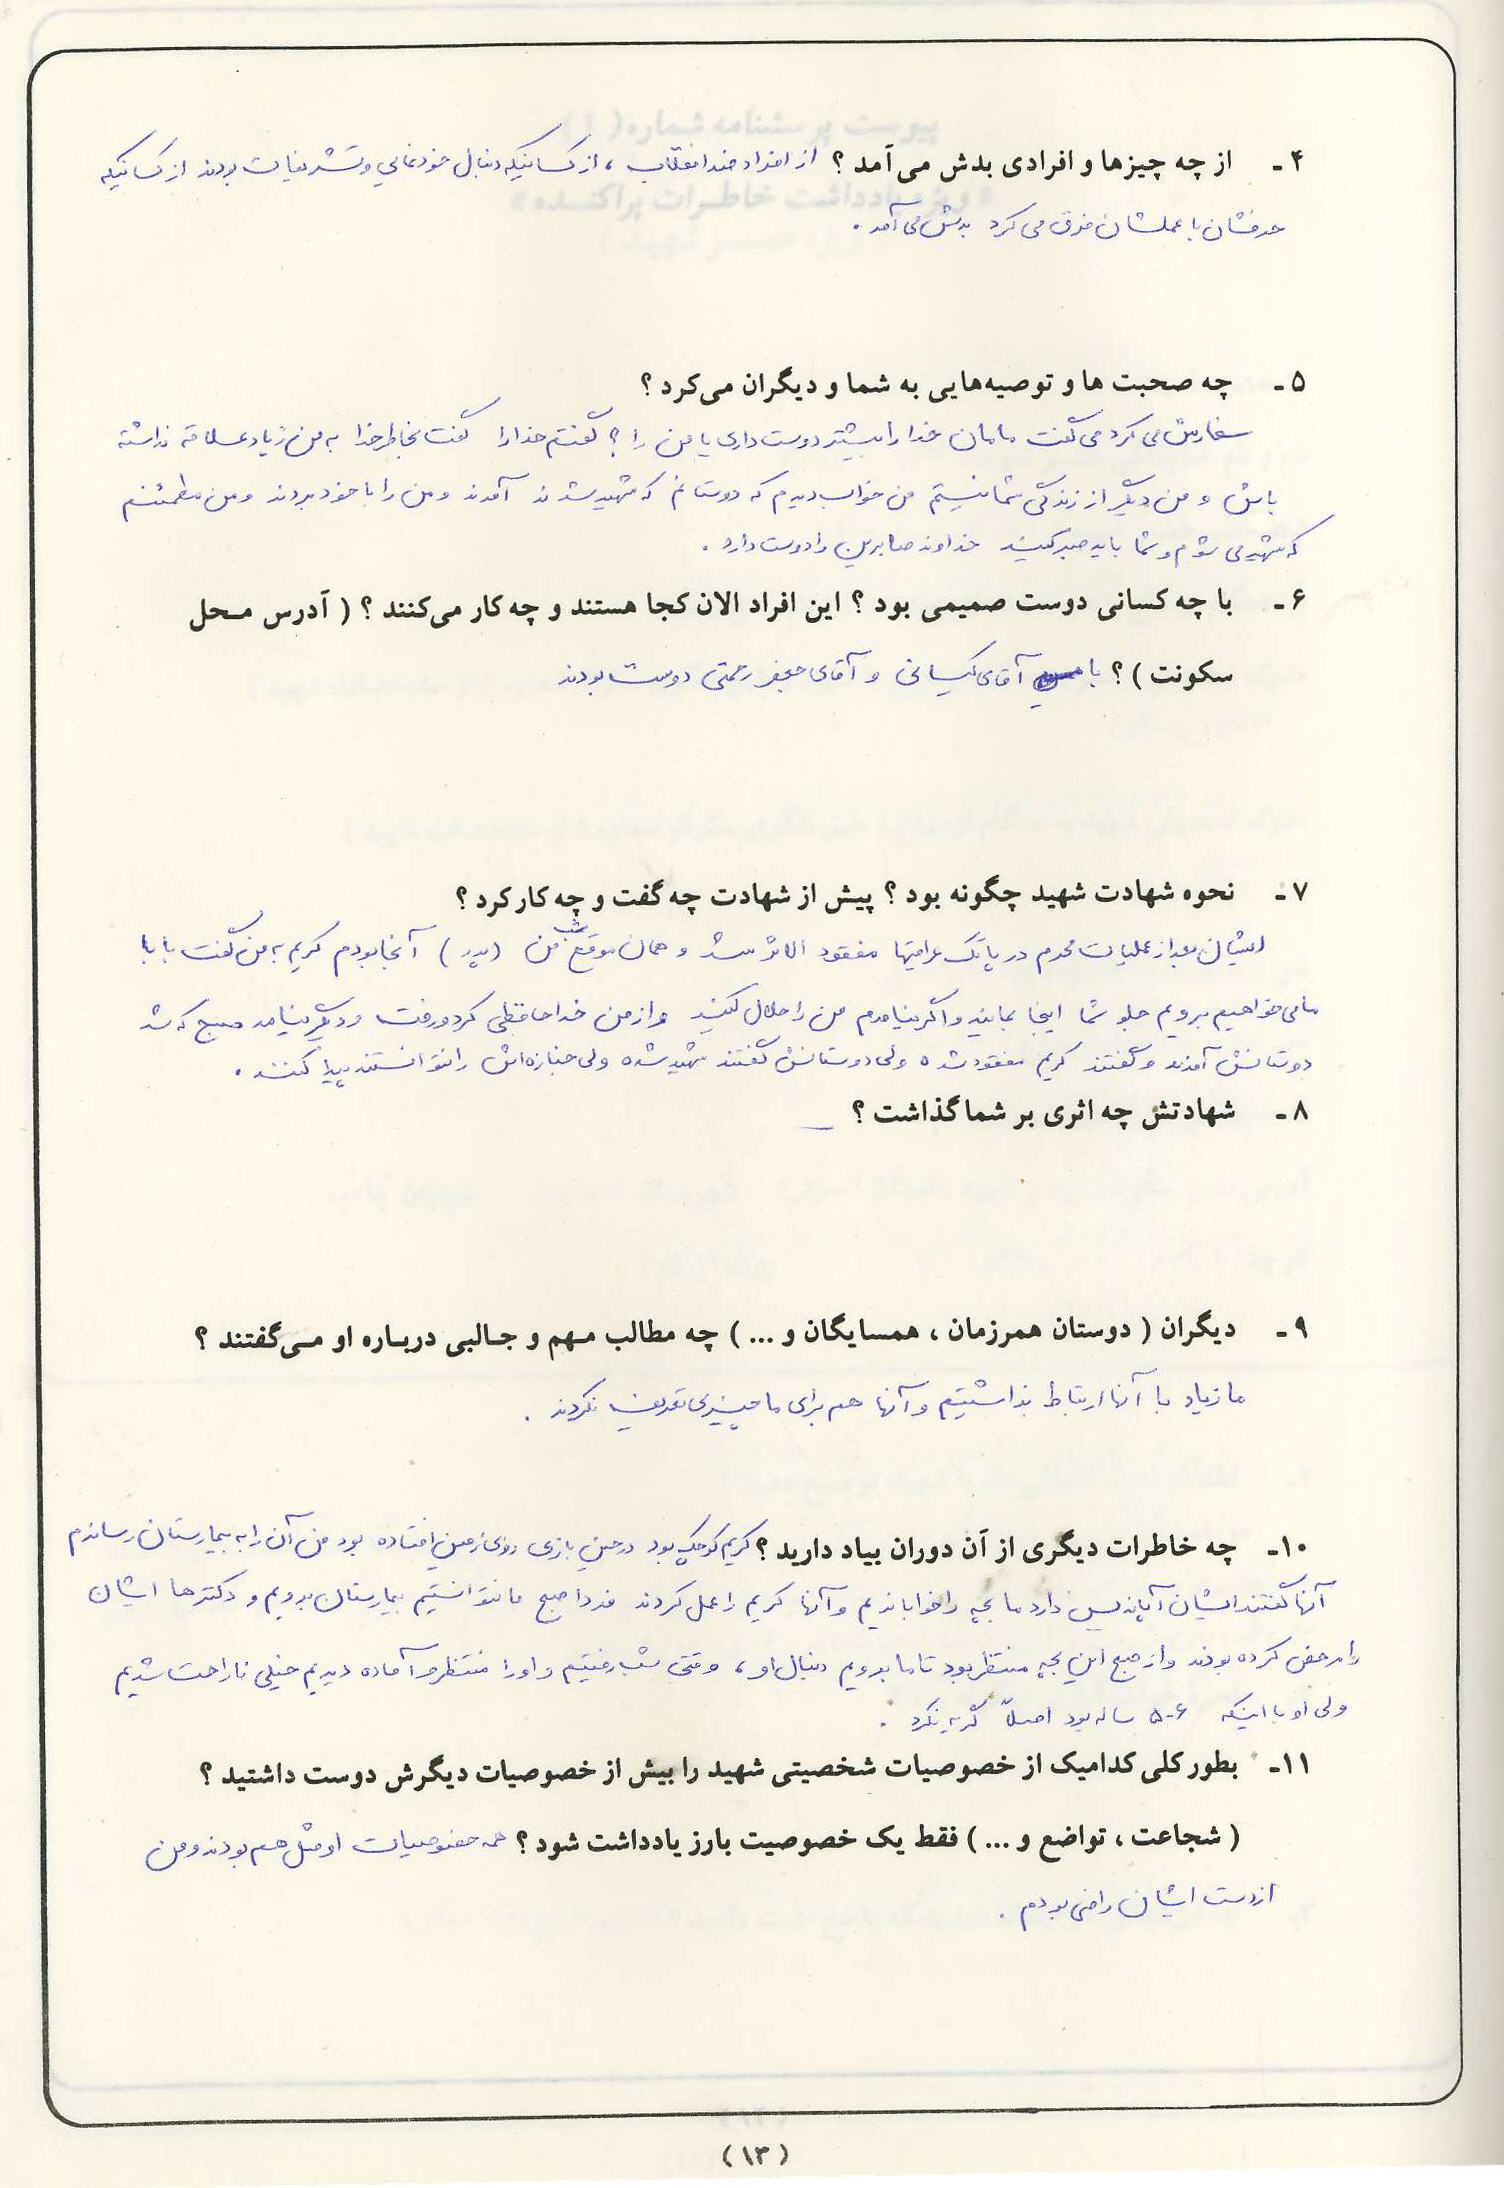 ۴ـ از چه چیزها و افرادی بدش می آمد ؟ از افراد ضد انقلاب ، از کسانیکه دنبال خودنمایی و تشریفات بودند از کسانیکه
حرفشان با عملشان فرق می کرد بدش می آمد .
۵ـ چه صحبت ها و توصیه‌هایی به شما و دیگران می‌کرد ؟
سفارش می کرد می گفت مامان خدا را بیشتر دوست داری یا من را ؟ گفتم خدا را گفت بخاطر خدا به من زیاد علاقه نداشته
باش و من دیگر از زندگی شما نیستم من خواب دیدم که دوستانم که شهید شدند آمدند و من را با خود بردند و من مطمئنم
که شهید می شوم و شما باید صبر کنید خداوند صابرین را دوست دارد .
۶ـ با چه کسانی دوست صمیمی بود ؟ این افراد الان کجا هستند و چه کار می‌کنند ؟ ( آدرس محل
سکونت ) ؟ با آقای کیسانی و آقای جعفر رحمتی دوست بودند
۷ـ نحوه شهادت شهید چگونه بود ؟ پیش از شهادت چه گفت و چه کار کرد ؟
ایشان بعد از عملیات محرم در پاتک عراقیها مفقود الاثر شد و همان موقع شب من (پدر) آنجا بودم کریم به من گفت بابا
ما می خواهیم برویم جلو شما اینجا بمانید و اگر نیامدم من را حلال کنید و از من خداحافظی کرد و رفت و دیگر نیامد صبح که شد
دوستانش آمدند و گفتند کریم مفقود شده ولی دوستانش گفتند شهید شده ولی جنازه اش را نتوانستند پیدا کنند .
۸ـ شهادتش چه اثری بر شما گذاشت ؟ ـ
۹ـ دیگران ( دوستان همرزمان ، همسایگان و ... ) چه مطالب مهم و جالبی درباره او می‌گفتند ؟
ما زیاد با آنها ارتباط نداشتیم و آنها هم برای ما چیزی تعریف نکردند .
۱۰ـ چه خاطرات دیگری از آن دوران بیاد دارید ؟ کریم کوچک بود در حین بازی روی زمین افتاده بود من آن را به بیمارستان رساندم
آنها گفتند ایشان آپاندیس دارد ما بچه را خواباندیم و آنها کریم را عمل کردند فردا صبح ما نتوانستیم بیمارستان برویم و دکترها ایشان
را مرخص کرده بودند و از صبح این بچه منتظر بود تا ما برویم دنبال او ، وقتی شب رفتیم و او را منتظر و آماده دیدیم خیلی ناراحت شدیم
ولی او با اینکه ۶-۵ ساله بود اصلاً گریه نکرد .
۱۱ـ بطور کلی کدامیک از خصوصیات شخصیتی شهید را بیش از خصوصیات دیگرش دوست داشتید ؟
( شجاعت ، تواضع و ... ) فقط یک خصوصیت بارز یادداشت شود ؟ همه خصوصیات او مثل هم بودند و من
از دست ایشان راضی بودم .
(۱۳)